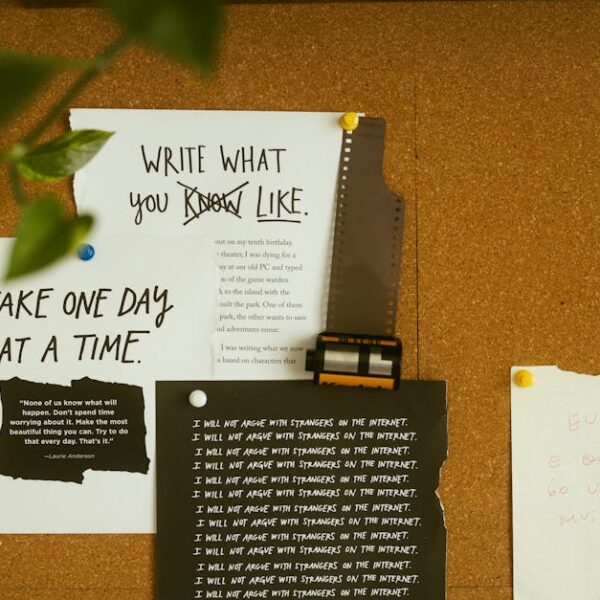 WRITE WHAT
YOU KNOW LIKE.
out on my tenth birthday.
theater, I was dying for a
ay at our old PC and typed
of the game warden
to the island with the
built the park. One of them
park, the other wants to save
adventures ensue.
I was writing what we now
based on characters that
AKE ONE DAY
AT A TIME.
"None of us know what will
happen. Don't spend time
worrying about it. Make the most
beautiful thing you can. Try to do
that every day. That's it."
—Laurie Anderson
I WILL NOT ARGUE WITH STRANGERS ON THE INTERNET.
I WILL NOT ARGUE WITH STRANGERS ON THE INTERNET.
I WILL NOT ARGUE WITH STRANGERS ON THE INTERNET.
I WILL NOT ARGUE WITH STRANGERS ON THE INTERNET.
I WILL NOT ARGUE WITH STRANGERS ON THE INTERNET.
I WILL NOT ARGUE WITH STRANGERS ON THE INTERNET.
I WILL NOT ARGUE WITH STRANGERS ON THE INTERNET.
I WILL NOT ARGUE WITH STRANGERS ON THE INTERNET.
I WILL NOT ARGUE WITH STRANGERS ON THE INTERNET.
I WILL NOT ARGUE WITH STRANGERS ON THE INTERNET.
I WILL NOT ARGUE WITH STRANGERS ON THE INTERNET.
I WILL NOT ARGUE WITH STRANGERS ON THE INTERNET.
I WILL NOT ARGUE WITH STRANGERS ON THE INTERNET.